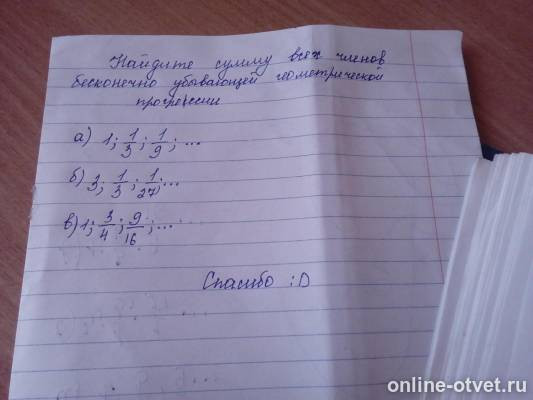 Найдите сумму всех членов
бесконечно убывающей геометрической
прогрессии
а) 1; 1/3; 1/9; ...
б) 3; 1/3; 1/27; ...
в) 1; 3/4; 9/16; ...
Спасибо :D
online-otvet.ru